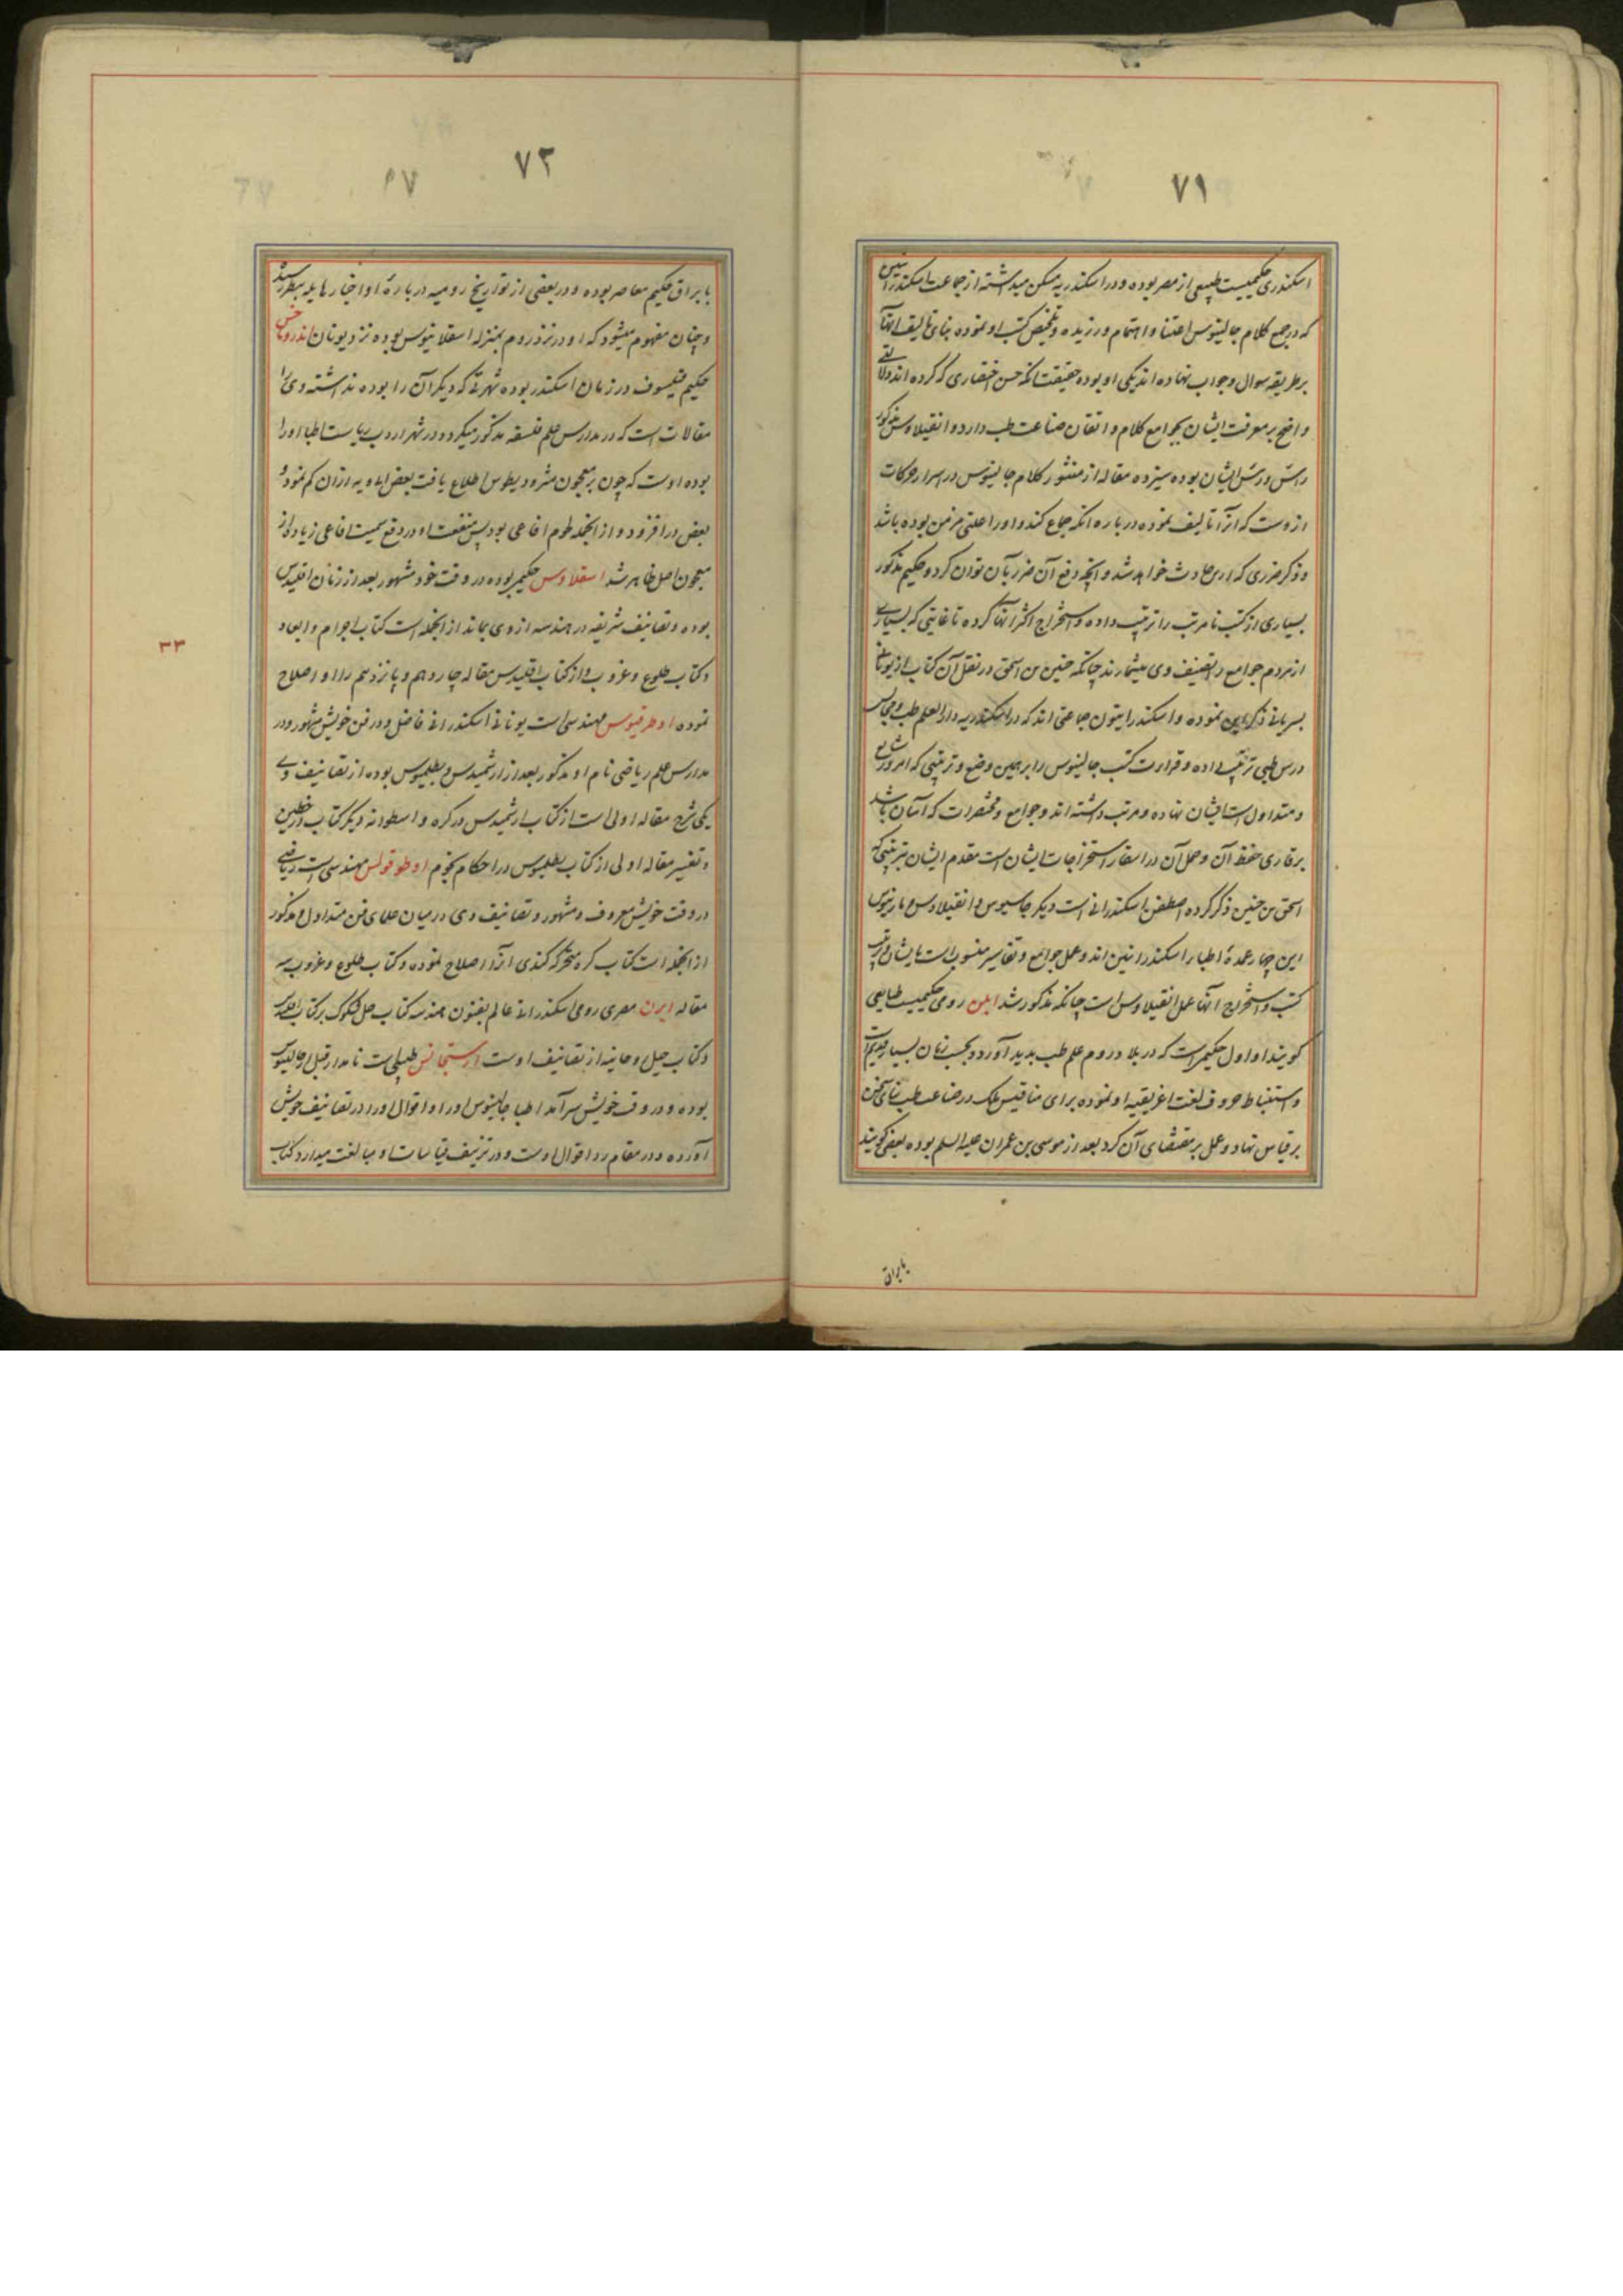 ۷۱
اسکندری حکیمیست طبیعی از مصر بوده و در اسکندریه مسکن میداشته از جماعت اسکندرانیین
که در جمع کلام جالینوس اعتنا و اهتمام ورزیده و تلخیص کتب او نموده بنای تالیف انها
بر طریقه سوال و جواب نهاده اند یکی او بوده حقیقت انکه حسن اختصاری که کرده اند دلالتی
واضح بر معرفت ایشان بجوامع کلام و اتقان صناعت طب دارد و انقیلاوس مذکور
راس و رئیس ایشان بوده سیزده مقاله از منثور کلام جالینوس در اسرار حرکات
ازوست که انرا تالیف نموده در باره انکه جماع کند و او را علتی مزمن بوده باشد
و ذکر ضرری که از ان حادث خواهد شد و انچه دفع آن ضرر بآن توان کرد و حکیم مذکور
بسیاری از کتب نامرتب را ترتیب داده و استخراج اکثر انها کرده تا غایتی که بسیاری
از مردم جوامع را تصنیف وی میشمارند چنانکه حنین بن اسحق در نقل آن کتاب از یونانی
بسریانی ذکر این نموده و اسکندرانیون جماعتی اند که در اسکندریه دار العلم طب و مجالس
درس طبی ترتیب داده و قراءت کتب جالینوس را بر همین وضع و ترتیبی که امروز شایع
و متداول است ایشان نهاده و مرتب داشته اند و جوامع و مختصرات که آسان باشد
بر قاری حفظ آن و حمل آن در اسفار استخراجات ایشان است مقدم ایشان بترتیبی که
اسحق بن حنین ذکر کرده اصطفن اسکندرانی است دیگر جاسیوس و انقیلاوس و مارینوس
این چهار عمدهٔ اطباء اسکندرانیین اند و عمل جوامع و تفاسیر منسوب است بایشان و ترتیب
کتب و استخراج انها عمل انقیلاوس است چنانکه مذکور شد ابلن رومی حکیمیست طبایعی
کویند او اول حکیمی است که در بلاد روم علم طب بدید آورد و بحسب زمان بسیار قدیم است
و استنباط حروف لغت اغریقیه او نموده برای مناقیس ملک در صناعت طب بنای سخن
بر قیاس نهاد و عمل بر مقتضای آن کرد بعد از موسی بن عمران علیه السلم بوده بعضی کویند
بابراق
۷۲
با براق حکیم معاصر بوده و در بعضی از تواریخ رومیه در بارهٔ او اخبار هایله بنظر رسید
و چنان مفهوم میشود که او در نزد روم بمنزله اسقلانیوس بوده نزد یونان اندروماخس
حکیم فیلسوف در زمان اسکندر بوده شهرتی که دیگران را بوده نداشته وی را
مقالات است که در مدارس علم فلسفه مذکور میکردد و در شهر اردب ریاست اطبا او را
بوده اوست که چون بر معجون مثرودیطوس اطلاع یافت بعض ادویه از ان کم نمود و
بعض در افزود و از انجمله لحوم افاعی بود پس منفعت او در دفع سمیت افاعی زیاد از
معجون اصل ظاهر شد اسقلاوس حکیمی بوده در وقت خود مشهور بعد از زمان اقلیدس
بوده و تصانیف شریفه در هندسه از وی بماند از انجمله است کتاب اجرام و ابعاد
و کتاب طلوع و غروب و از کتاب اقلیدس مقاله چاردهم و پانزدهم را او اصلاح
نموده اوطوقیوس مهندسی است یونانی اسکندرانی فاضل و در فن خویش مشهور و در
مدارس علم ریاضی نام او مذکور بعد از ارشمیدس و بطلمیوس بوده از تصانیف وی
یکی شرح مقاله اولی است از کتاب ارشمیدس در کره و اسطوانه دیگر کتاب در خطین
و تفسیر مقاله اولی از کتاب بطلمیوس در احکام نجوم اوطوقولس مهندسی است ریاضی
در وقت خویش معروف و مشهور و تصانیف وی در میان علمای فن متداول و مذکور
از انجمله است کتاب کره متحرکه کندی انرا اصلاح نموده و کتاب طلوع و غروب سه
مقاله ایرن مصری رومی اسکندرانی عالم بفنون هندسه کتاب حل شکوک بر کتاب اقلیدس
و کتاب حیل روحانیه از تصانیف اوست ارستجانس طبیبی است نامدار قبل از جالینوس
بوده و در وقت خویش سرآمد اطبا جالینوس او را و اقوال او را در تصانیف خویش
آورده و در مقام رد اقوال اوست و در تزییف قیاسات او مبالغت میدارد کتاب
۳۳